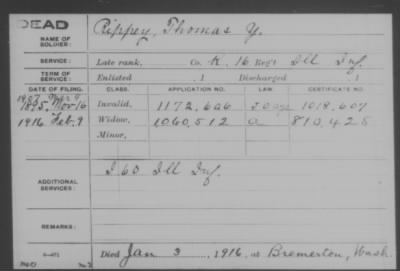 DEAD
NAME OF SOLDIER: Rippey, Thomas Y.
SERVICE: Late rank, Co. K, 16 Reg't Ill Inf.
TERM OF SERVICE: Enlisted , 1 Discharged , 1
DATE OF FILING. CLASS. APPLICATION NO. LAW. CERTIFICATE NO.
1895, Nov 16 Invalid, 1172,626 1018,607
1916 Feb. 9 Widow, 1060,512 a 810,425
Minor,
ADDITIONAL SERVICES: I 60 Ill Inf.
REMARKS:
Died Jan 3, 1916, at Bremerton, Wash.